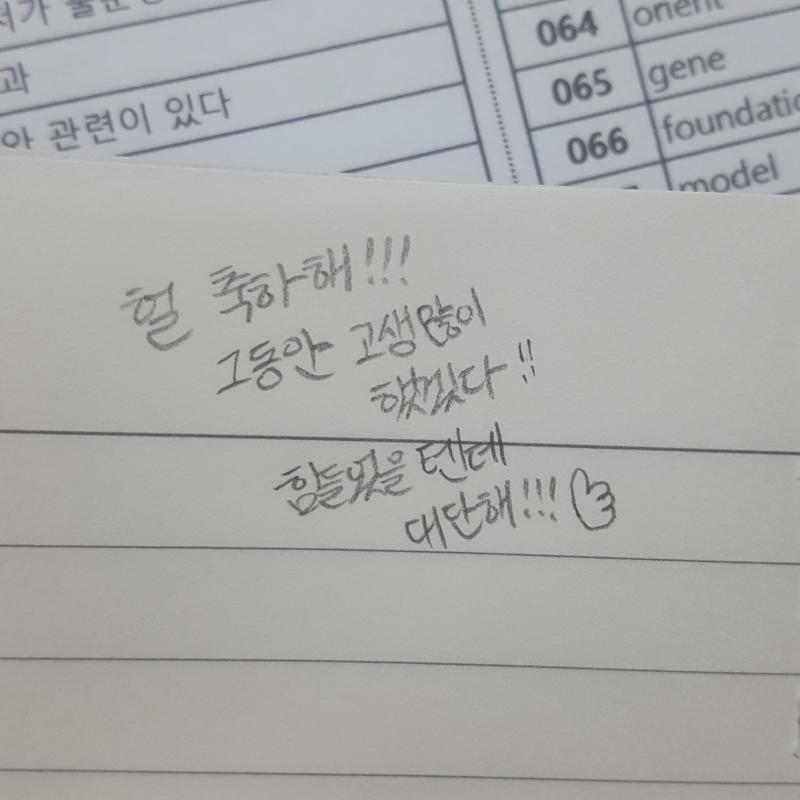 과
관련이 있다
064 orient
065 gene
066
model
헐 축하해!!!
그동안 고생많이
했겠다!!
힘들었을 텐데
대단해!!!